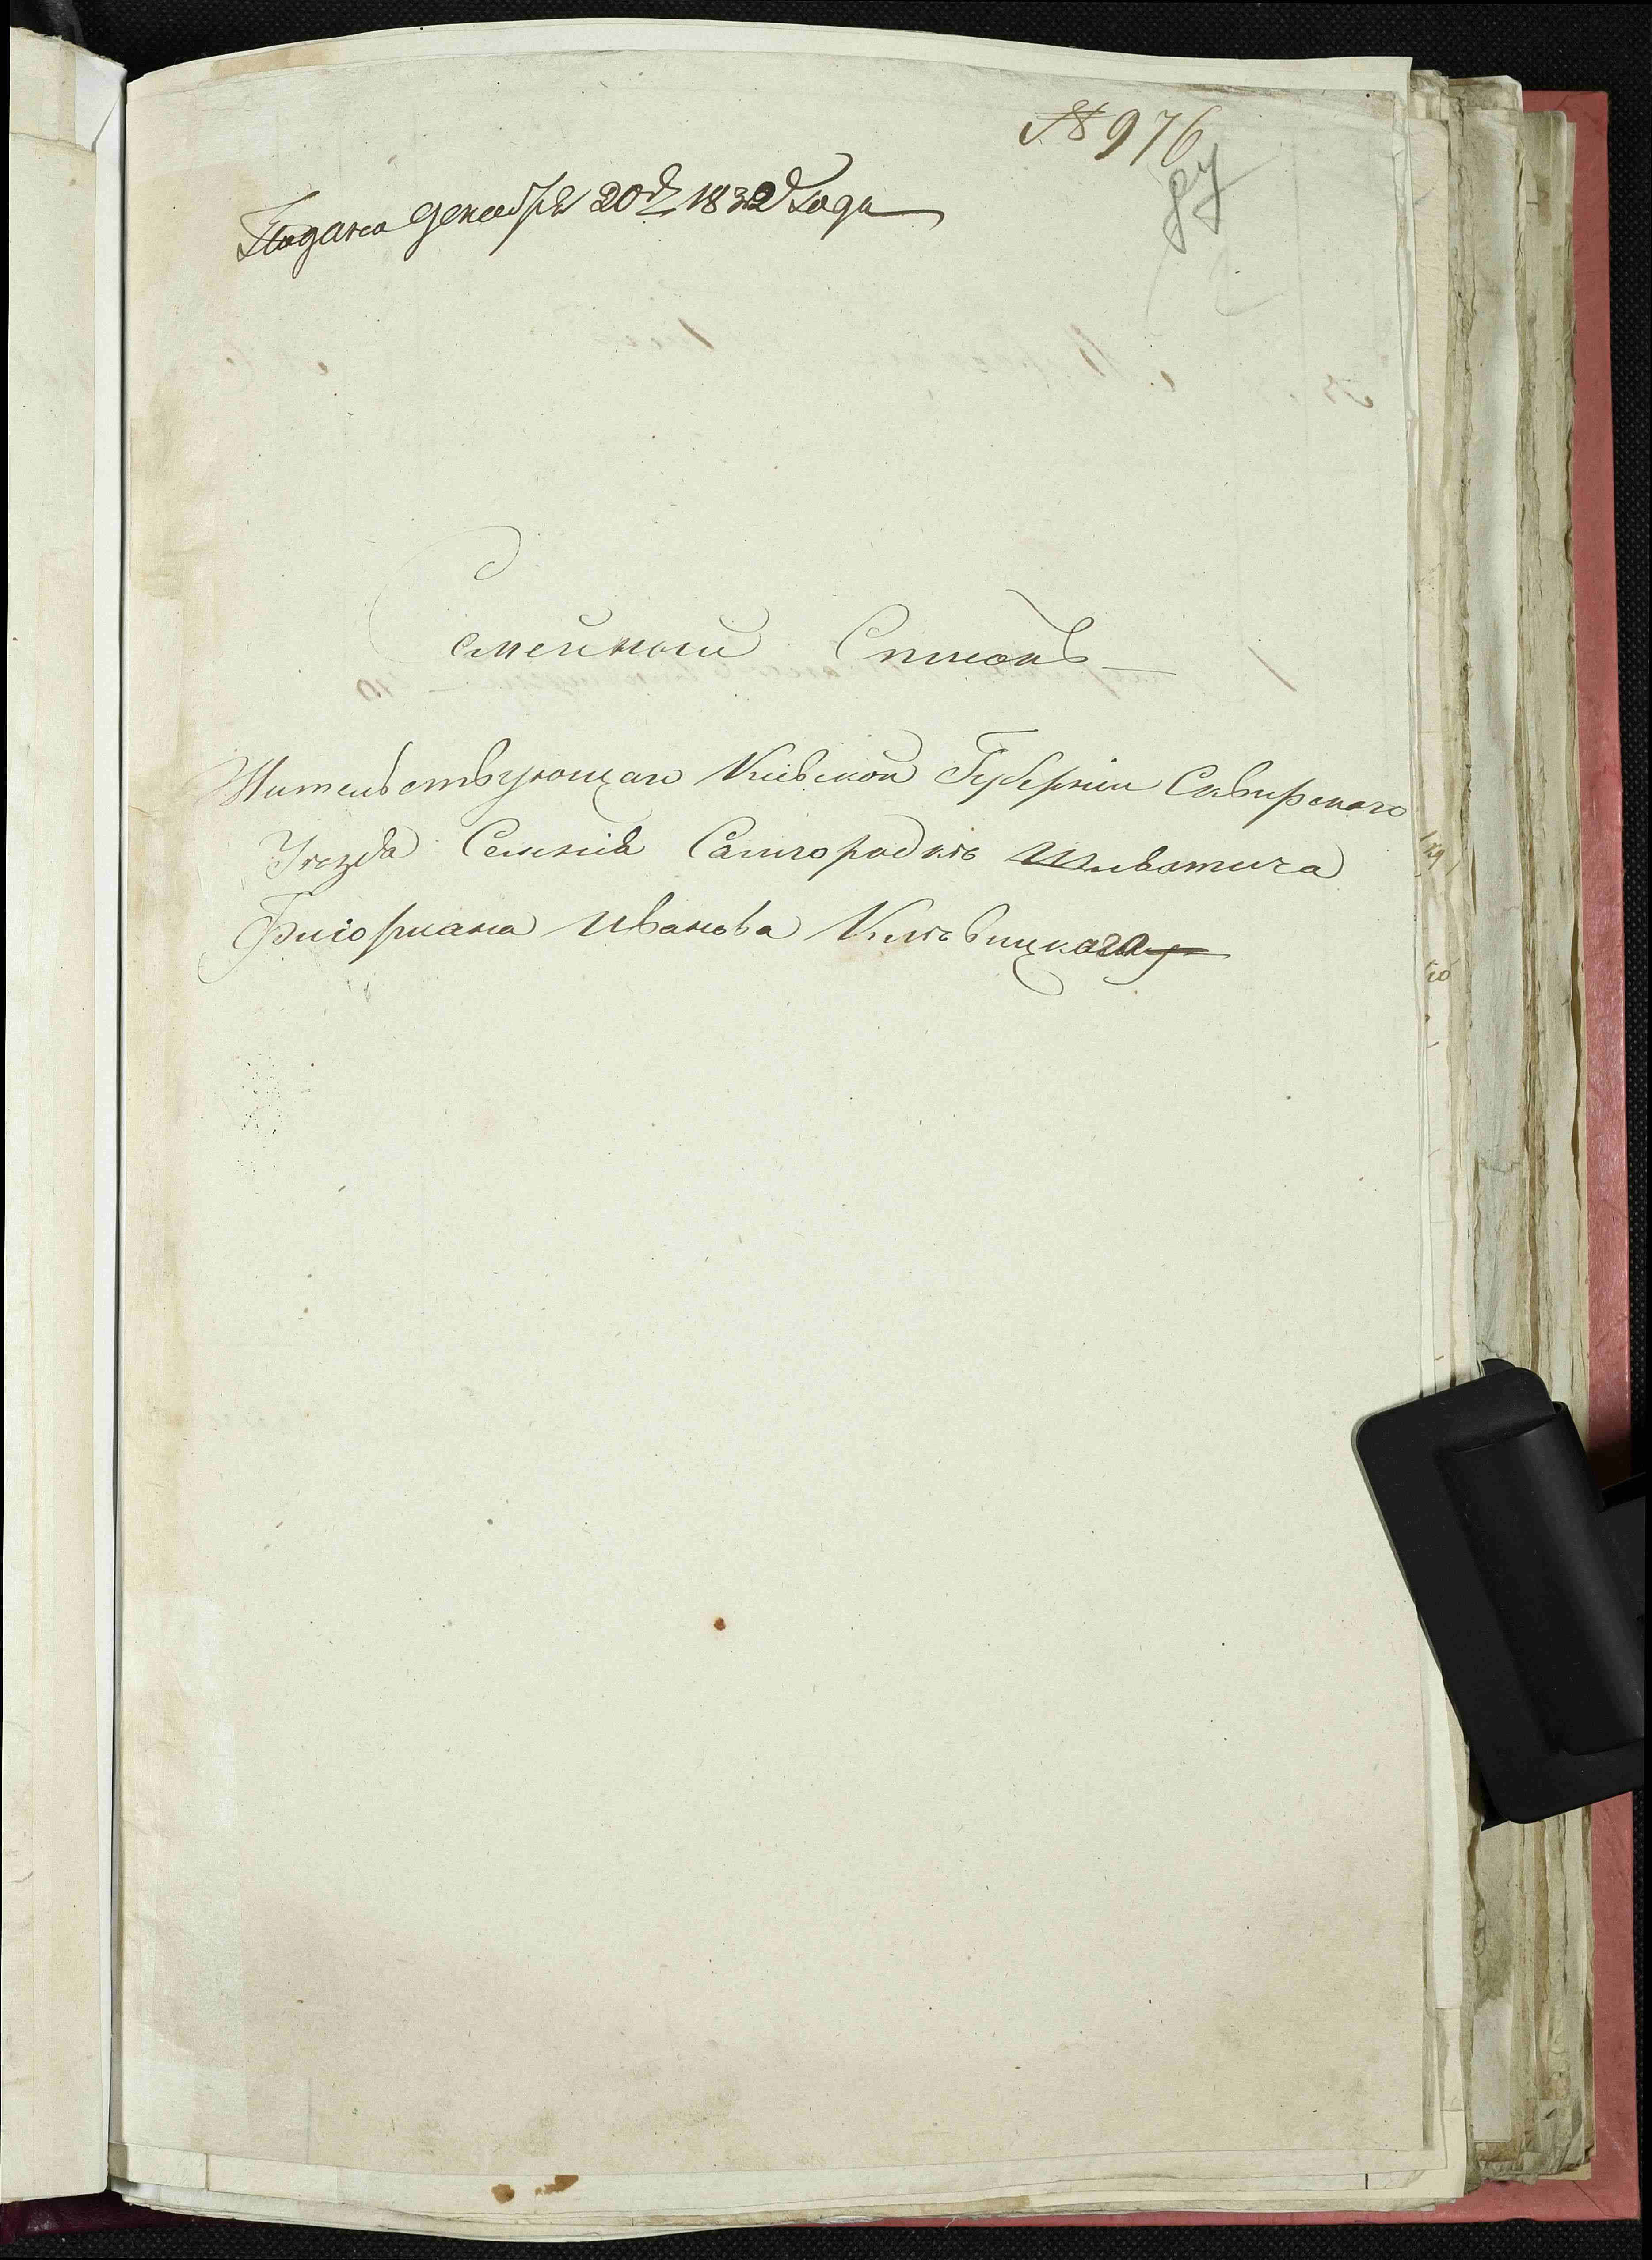 № 976
87
Подано декабря 20го 1832 года
Семейный Списокъ
Жительствующаго Кіевской Губерніи Сквирскаго
Уезда Селенія Самгородкѣ Шляхтича
Флоріана Иванова